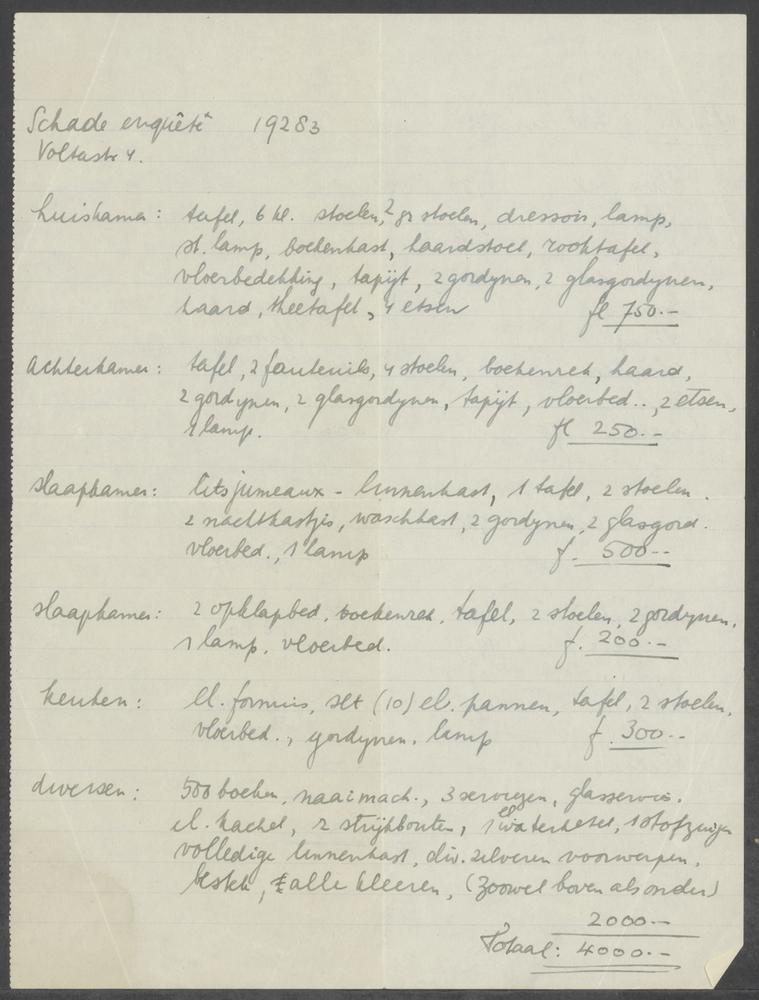 Schade enquête 19283
Voltastr 4.
huiskamer: tafel, 6 kl. stoelen, 2 gr stoelen, dressoir, lamp,
st. lamp, boekenkast, haardstoel, rooktafel,
vloerbedekking, tapijt, 2 gordijnen, 2 glasgordijnen,
haard, theetafel, 4 etsen fl 750.-
Achterkamer: tafel, 2 fauteuils, 4 stoelen, boekenrek, haard,
2 gordijnen, 2 glasgordijnen, tapijt, vloerbed.., 2 etsen,
1 lamp. fl 250.-
slaapkamer: lits jumeaux - linnenkast, 1 tafel, 2 stoelen.
2 nachtkastjes, waschkast, 2 gordijnen, 2 glasgord.
vloerbed., 1 lamp f. 500.-
slaapkamer: 2 opklapbed, boekenrek, tafel, 2 stoelen, 2 gordijnen,
1 lamp, vloerbed. f. 200.-
keuken: el. fornuis, set (10) el. pannen, tafel, 2 stoelen,
vloerbed., gordijnen, lamp f. 300.-
diversen: 500 boeken, naaimach., 3 serviezen, glasservies.
el. kachel, 2 strijkbouten, 1 el waterketel, 1 stofzuiger
volledige linnenkast, div. zilveren voorwerpen,
bestek, ± alle kleeren, (zoowel boven als onder)
2000.-
Totaal: 4000.-